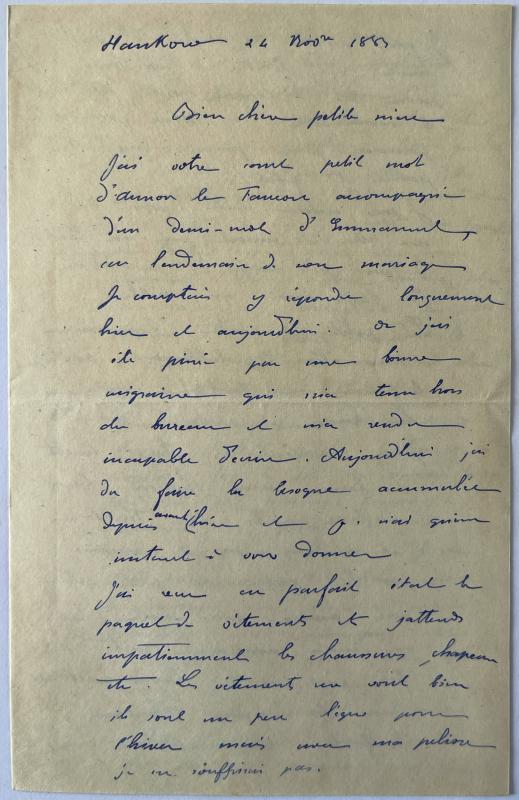 Hankow 24 Nobre 188
Bien chère petite mère
J'ai votre court petit mot
d' le accompagné
d'un demi-mot d'Emmanuel,
au lendemain de son mariage
Je comptais y répondre longuement
hier et aujourd'hui. Or j'ai
été pincé par une bonne
migraine qui m'a tenu hors
du bureau et m'a rendu
incapable d'écrire. Aujourd'hui j'ai
du faire la besogne accumulée
depuis avant hier et je n'ai qu'un
instant à vous donner
J'ai reçu en parfait état le
paquet de vêtements et j'attends
impatiemment les chaussures, chapeau
etc. Les vêtements me vont bien
ils sont un peu légers pour
l'hiver mais avec ma pelisse
je n'en souffrirai pas.